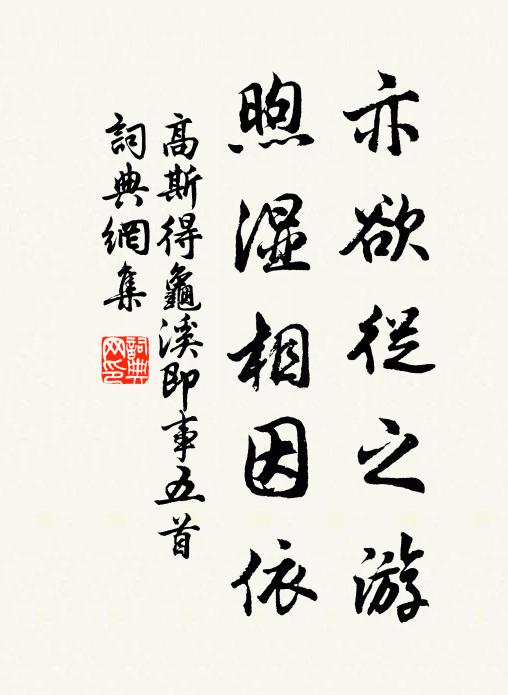 亦欲従之游
煦湿相因依
高斯得龜溪即事五首
詞典網集
詞典網印